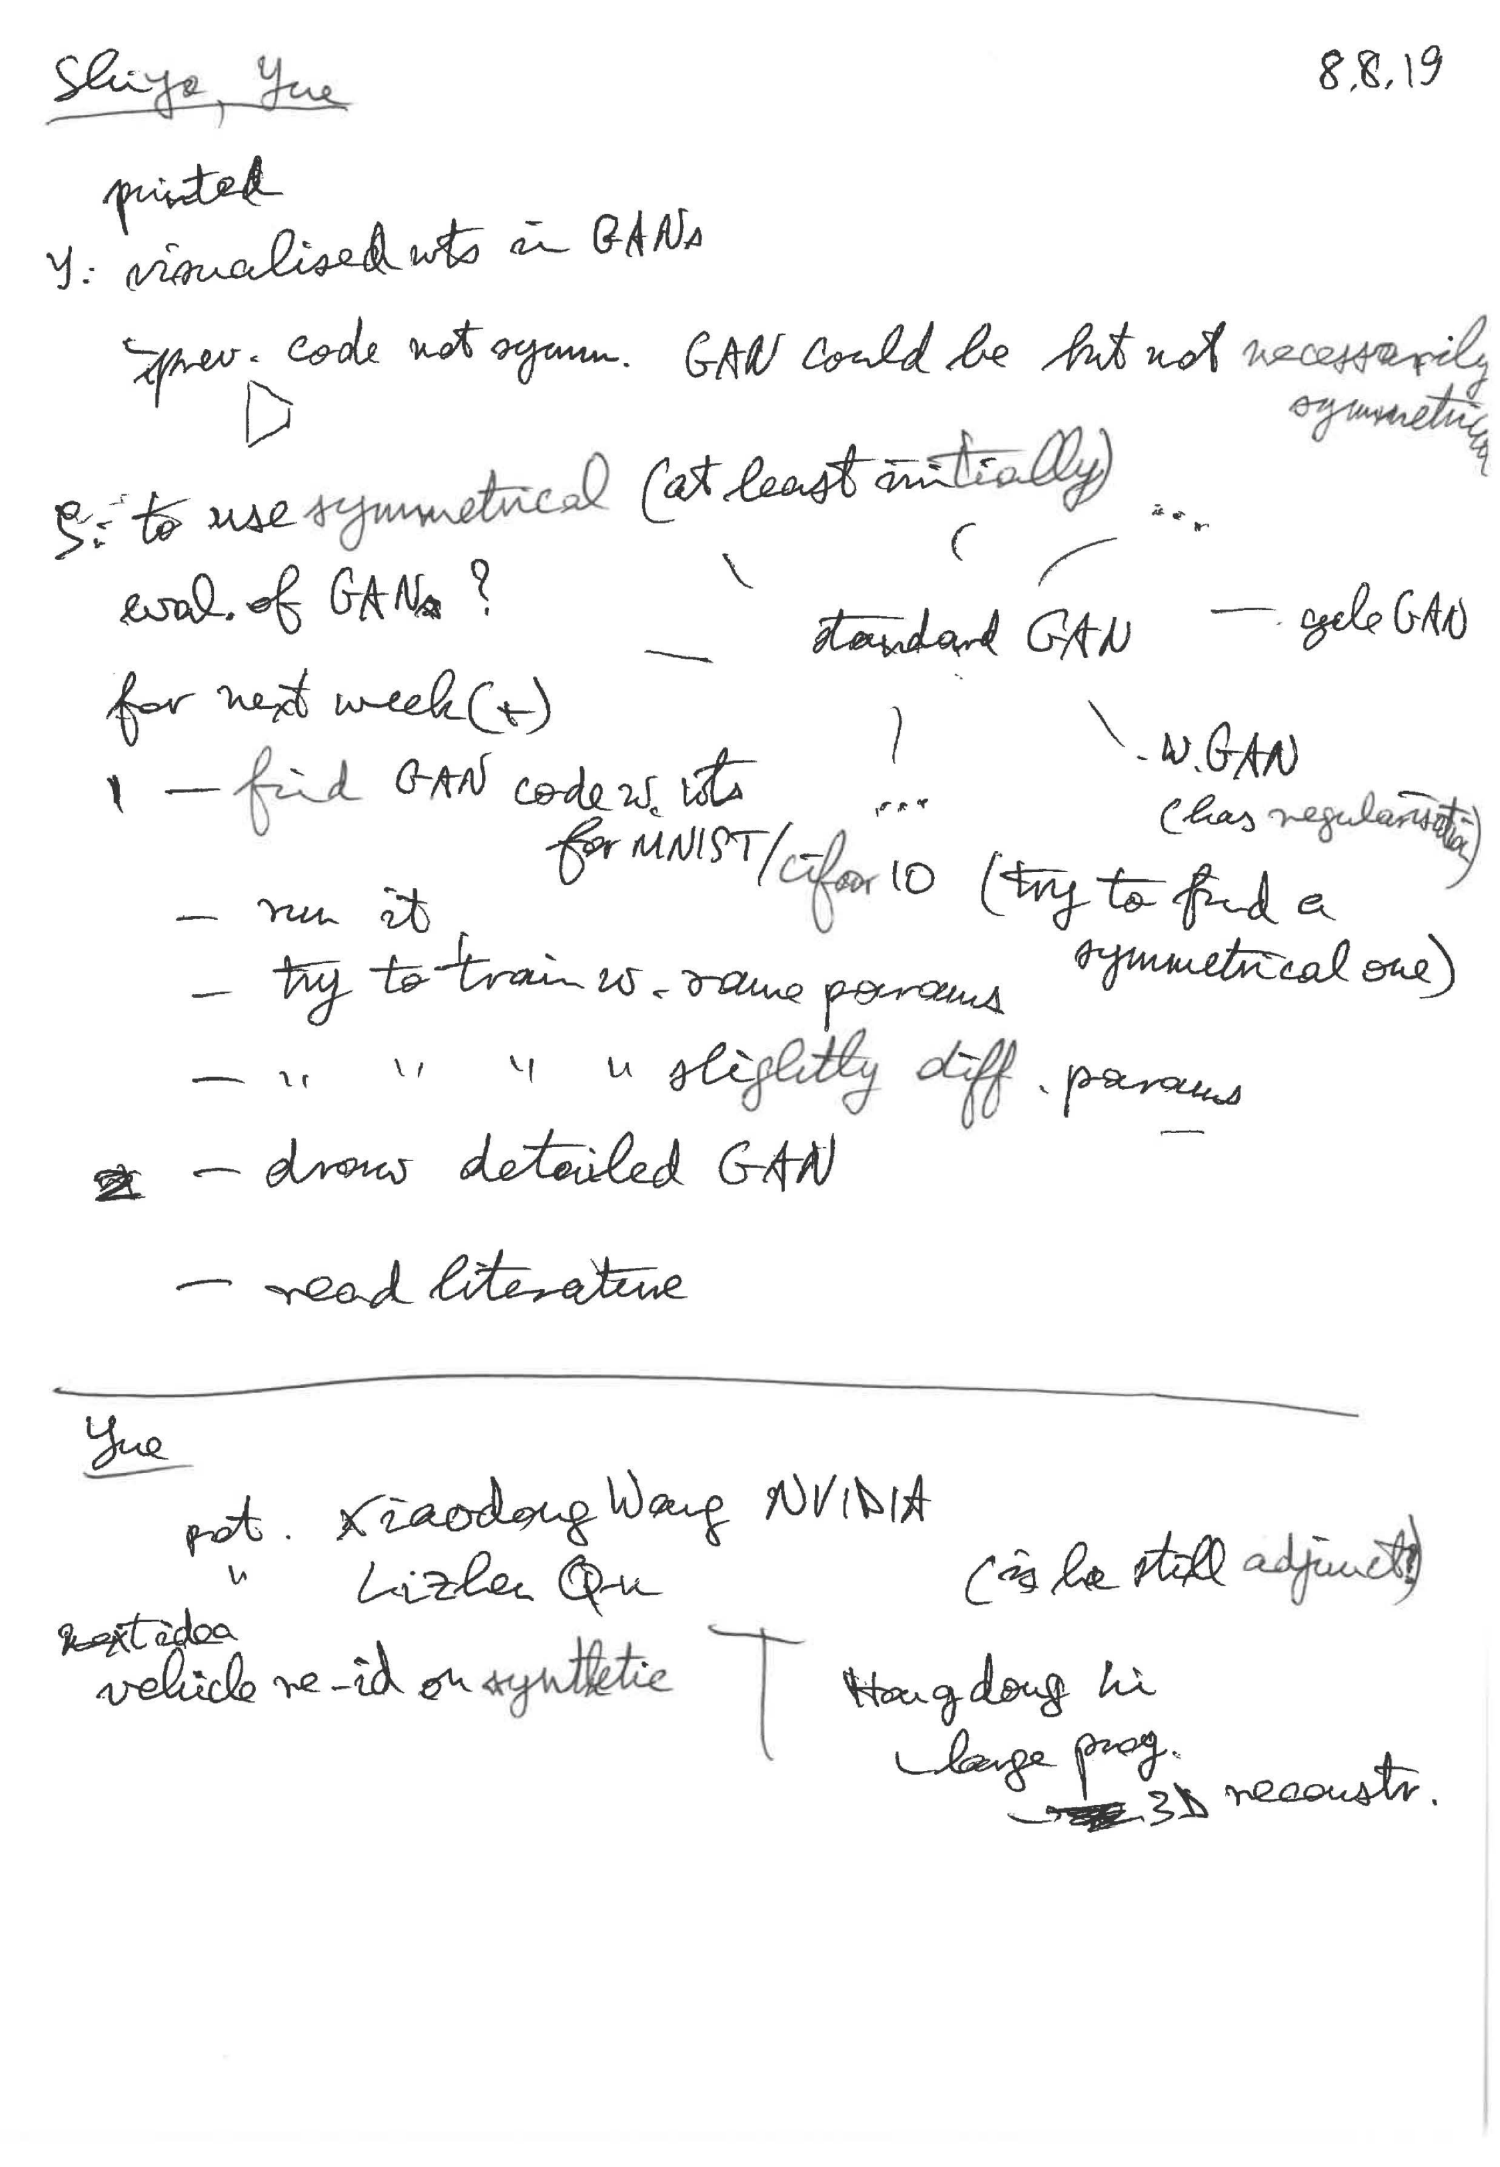 Shiya, Yue 8.8.19
printed
Y: visualised wts in GANs
prev. code not symm. GAN could be but not necessarily
symmetrical
S: to use symmetrical (at least initially)
...
eval. of GANs ?
standard GAN — cycle GAN
for next week (+)
W. GAN
1 — find GAN code w. wts
...
(has regularisation)
for MNIST/cifar 10 (try to find a
symmetrical one)
— run it
— try to train w. same params
— " " " " slightly diff. params
2 — draw detailed GAN
— read literature
Yue
pot. Xiaodong Wang NVIDIA
" Lizhen Qu (is he still adjunct?)
next idea
vehicle re-id on synthetic
Hongdong Li
large prog.
3D reconstr.